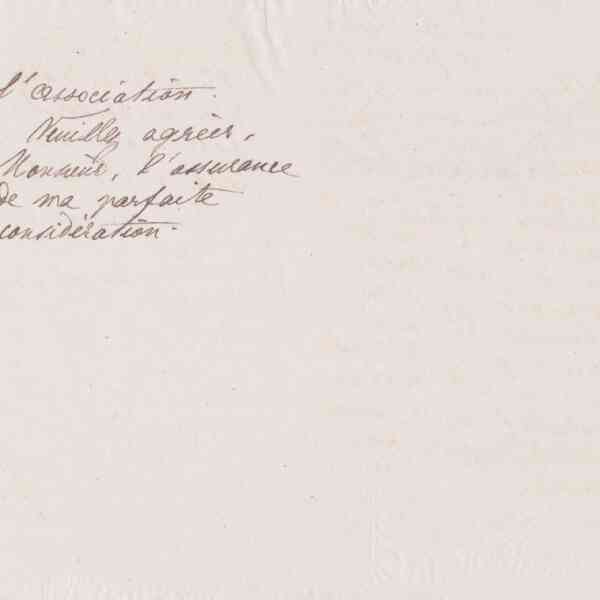 l'association.
Veuillez agréer,
Monsieur, l'assurance
de ma parfaite
considération.